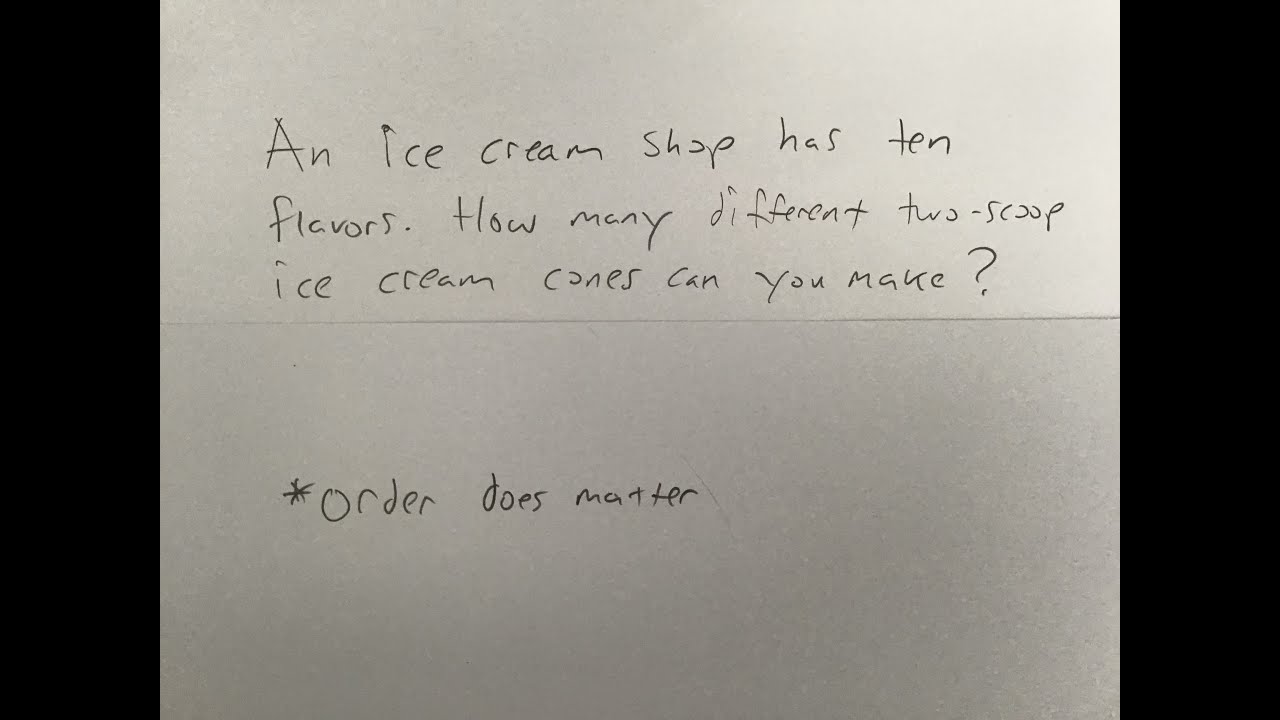 An ice cream shop has ten
flavors. How many different two-scoop
ice cream cones can you make?
*Order does matter